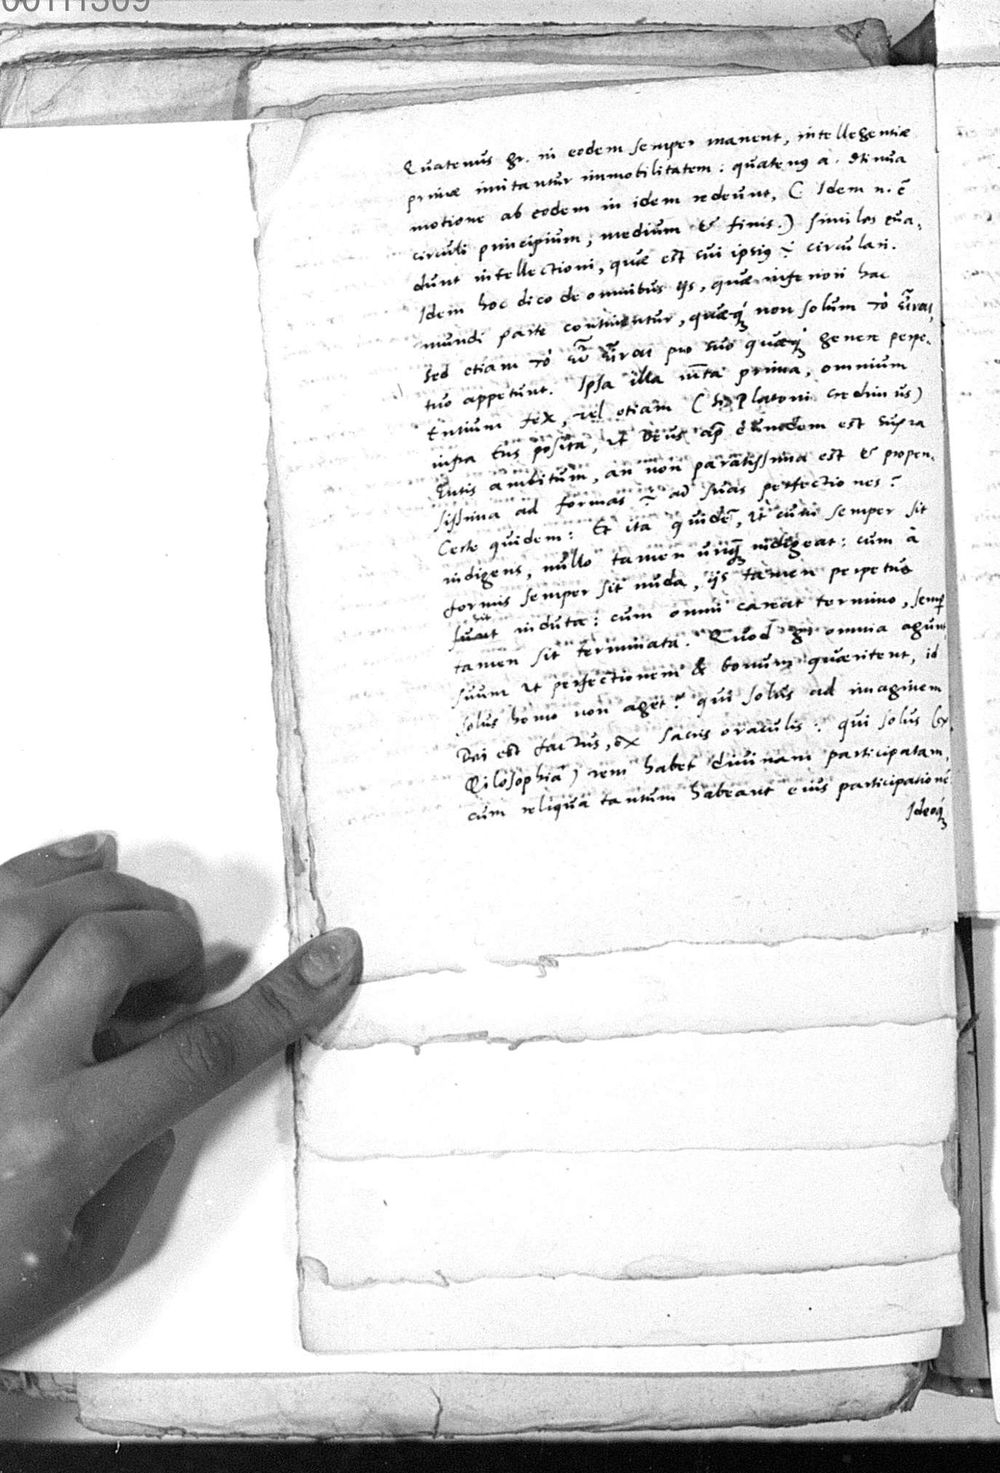 00111309
Quatenus gr. in eodem semper manent, intellegentiæ
primæ imitantur immobilitatem: quatenus a. 9tinua
motione ab eodem in idem redeunt, (Idem n. ē
circuli principium, medium & finis.) similes eua-
dunt intellectioni, quæ est sui ipsius circulari.
Idem hoc dico de omnibus ijs, quæ inferiori hac
mundi parte continentur, quæq; non solum τὸ εἶναι,
sed etiam τὸ εὖ εἶναι pro suo quæq; genere perpe-
tuo appetunt. Ipsa illa prima, omnium
Entium fex, vel etiam (si Platoni credimus)
infra Ens posita, ut Deus ap eundem est supra
Entis ambitum, an non paratissima est & propen-
sissima ad formas ad suas perfectiones?
Certe quidem: Et ita quidē, ut cum semper sit
indigens, nullo tamen unq; indigeat: cum à
formis semper sit nuda, ijs tamen perpetuo
sit induta: cum omni careat termino, semp
tamen sit terminata. Quod omnia agunt
suum ut perfectionem & bonum quæritent, id
solus homo non aget? qui solus ad imaginem
Dei est factus, ex sacris oraculis: qui solus (ex
Philosophia) rem habet diuinam participatam,
cum reliqua tantum habeant eius participationē
Ideoq;